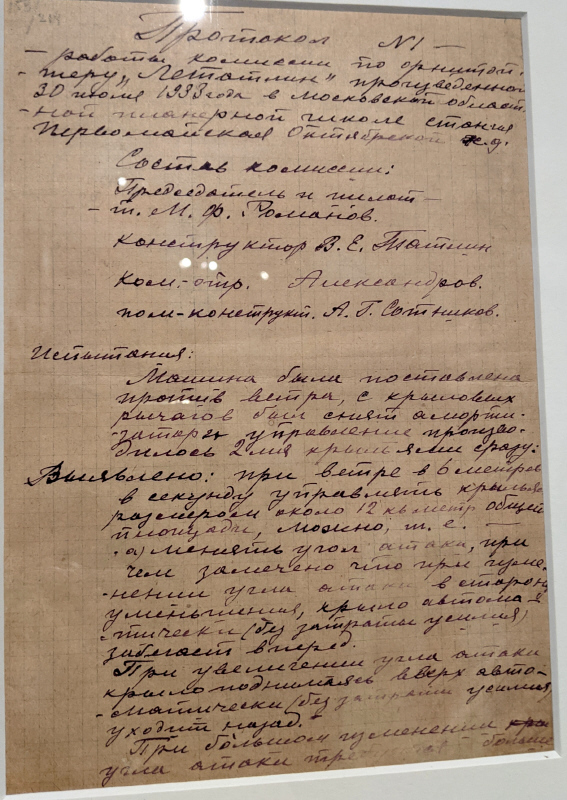 Протокол N1 —
— работы комиссии по орнитоп-
-теру „Летатлин" произведенной
30 июля 1933 года в Московской област-
-ной планерной школе станция
Первомайская Октябрьской ж.д.
Состав комиссии:
Председатель и пилот —
— т. М. Ф. Романов.
конструктор В. Е. Татлин
ком.-отр. Александров.
пом-конструкт. А. Г. Сотников.
Испытания:
Машина была поставлена
против ветра, с крыловых
рычагов был снят аморти-
-затор и управление произво-
дилось 2мя крыльями сразу:
Выявлено: при ветре в 6 метров
в секунду управлять крыльями
размером около 12 кв метр общей
площади, можно, т. е.
а) менять угол атаки, при
чем замечено что при изме-
-нении угла атаки в сторону
уменьшения, крыло автома-
-тически (без затраты усилия)
забегает вперед.
При увеличении угла атаки
крыло поднимаясь вверх авто-
-матически (без затраты усилия)
уходит назад.
При большом изменении
угла атаки больше